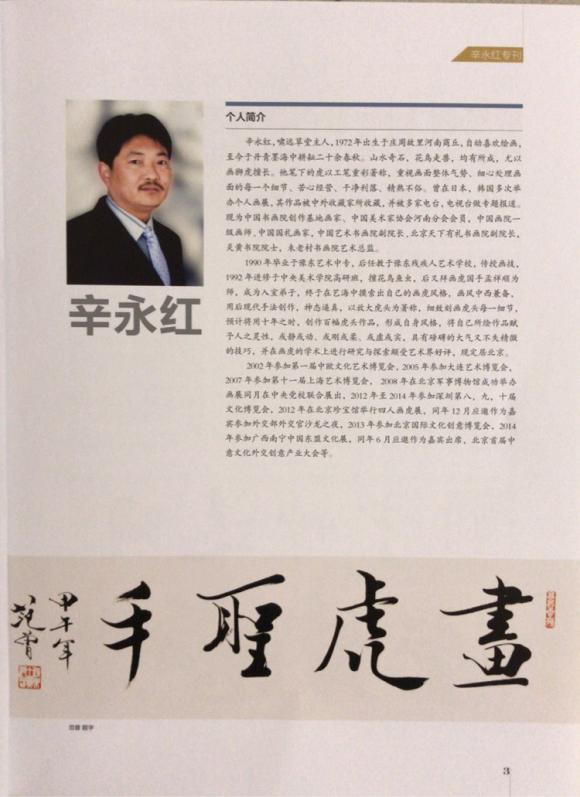 辛永红专刊
个人简介
辛永红，啸远草堂主人，1972年出生于庄周故里河南商丘，自幼喜欢绘画，
至今于丹青墨海中耕耘二十余春秋。山水奇石，花鸟走兽，均有所成，尤以
画狮虎擅长。他笔下的虎以工笔重彩著称，重视画面整体气势、细心处理画
面的每一个细节、苦心经营、干净利落、精熟不俗。曾在日本，韩国多次举
办个人画展，其作品被中外收藏家所收藏，并被多家电台，电视台做专题报道。
现为中国书画院创作基地画家、中国美术家协会河南分会会员，中国画院一
级画师、中国国礼画家，中国艺术书画院副院长、北京天下有礼书画院副院长，
炎黄书院院士，朱老村书画院艺术总监。
1990年毕业于豫东艺术中专，后任教于豫东残疾人艺术学校，传授画技，
1992年进修于中央美术学院高研班，擅花鸟鱼虫，后又拜画虎国手孟祥顺为
师，成为入室弟子，终于在艺海中摸索出自己的画虎风格，画风中西兼备，
用后现代手法创作，神态逼真，以放大虎头为著称，细致刻画虎头每一细节，
预计将用十年之时，创作百幅虎头作品，形成自身风格，将自己所绘作品赋
予人之灵性，或静或动、或刚或柔、或虚或实，具有磅礴的大气又不失精微
的技巧，并在画虎的学术上进行研究与探索颇受艺术界好评，现定居北京。
2002年参加第一届中欧文化艺术博览会，2005年参加大连艺术博览会，
2007年参加第十一届上海艺术博览会， 2008年在北京军事博物馆成功举办
画展同月在中央党校联合展出，2012年至2014年参加深圳第八，九，十届
文化博览会，2012年在北京珍宝馆举行四人画虎展，同年12月应邀作为嘉
宾参加外交部外交官沙龙之夜，2013年参加北京国际文化创意博览会，2014
年参加广西南宁中国东盟文化展，同年6月应邀作为嘉宾出席，北京首届中
意文化外交创意产业大会等。
辛永红
畫虎聖手
甲午年
范曾
范曾 题字
3